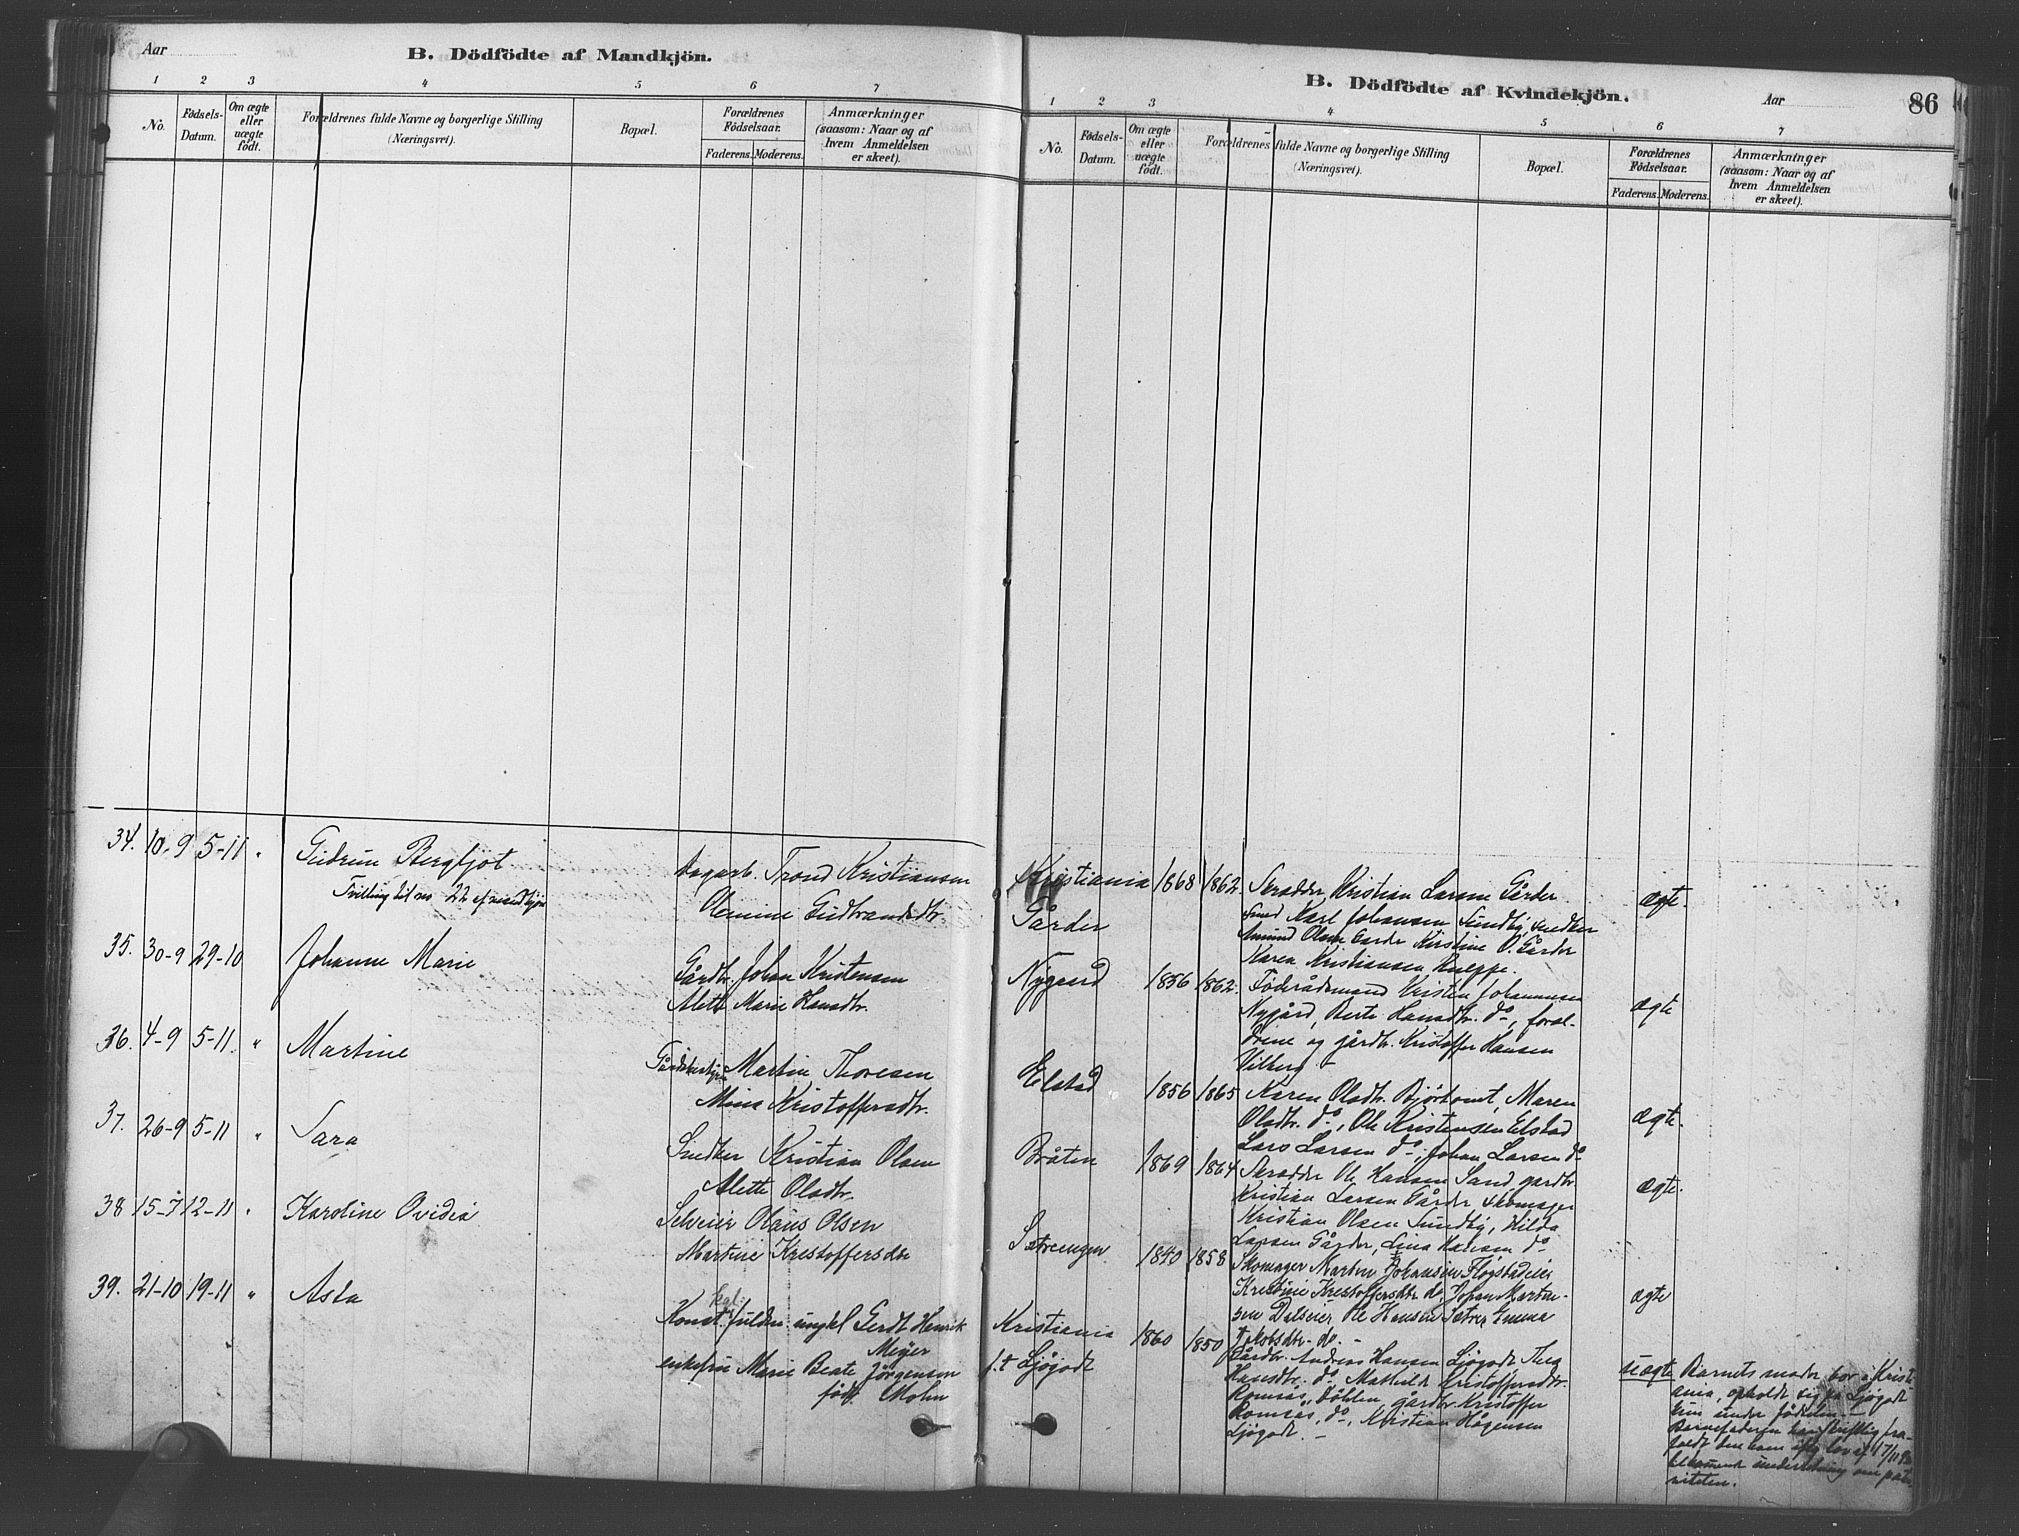 Aar
B. Dödfödte af Mandkjön.
1 2 3 4 5 6 7
No.
Födsels-
Datum.
Om ægte
eller
uægte
födt.
Forældrenes fulde Navne og borgerlige Stilling
(Næringsvei).
Bopæl.
Forældrenes
Födselsaar.
Faderens. Moderens.
Anmærkninger
(saasom: Naar og af
hvem Anmeldelsen
er skeet).
B. Dödfödte af Kvindekjön.
Aar
86
1 2 3 4 5 6 7
No.
Födsels-
Datum.
Om ægte
eller
uægte
födt.
Forældrenes fulde Navne og borgerlige Stilling
(Næringsvei).
Bopæl.
Forældrenes
Födselsaar.
Faderens. Moderens.
Anmærkninger
(saasom: Naar og af
hvem Anmeldelsen
er skeet).
34. 10-9 5-11 " Gudrun Bergljot
Tvilling til no 22 af mandkjön
Dagarb. Trond Kristiansen
Olemine Gudbrandsdtr.
Kristiania 1868 1862
Gårder
Skrædder Kristian Larsen Gårder
Smed Karl Johansen Sundby, snedker
Amund Olsen Garder Kirstine O. Gårder
Karen Kristiansen Kneppe.
ægte.
35. 30-9 29-10 Johanne Marie
Gårdbr. Johan Kristensen
Alette Marie Hansdtr.
Nygaard 1856 1862
Föderådsmand Kristen Johannesen
Nygård, Berte Hansdtr. do, foræl-
drene og gårdbr. Kristoffer Hansen
Vilberg –
ægte
36. 4-9 5-11. " Martine
Gårdbestyrer Martin Thoresen
Mina Kristoffersdtr.
Elstad 1856 1865
Karen Olsdtr. Bjørtomt, Maren
Olsdtr. do, Ole Kristensen Elstad
Lars Larsen do, Johan Larsen do
ægte.
37. 26-9 5-11 " Sara
Snedker Kristian Olsen
Alette Olsdtr.
Bråten 1869 1864
Skrædder Ole Hansen Sand, gardbr.
Kristian Larsen Gårder skomager
Kristian Olsen Sundby, Hilda
Larsen Gårder, Lina Hansen do
ægte.
38 15-7 12-11 " Karoline Ovidia
Selveier Olaus Olsen
Martine Krestoffersdtr
Sætreengen 1840 1858
Skomager Martin Johansen Flogstadeie
Krestine Krestoffersdtr do, Johan Martin-
sen Dalseie, Ole Hansen Sætre, Emma
Jakobsdtr. do. –
ægte
39. 21-10 19-11 " Asta
kgl.
Konst. fuldm. ungkl Gerdt Henrik
Meyer
enkefru Marie Beate Jörgensen
född Mohn
Kristiania 1860 1850
f.t Ljøgodt
Gårdbr. Andreas Hansen Ljøgodt Thea
Hansdtr. do, Mathilde Kristoffersdtr.
Romsås, Döhlen, gårdbr. Kristoffer
Romsås, do, Kristian Hågensen
Ljøgodt. –
uægte Barnets moder bor i Kristi-
ania, opholdt sig på Ljøgodt
kun under födselen –
Barnefaderen har skriftlig fra-
faldt den ham efter lov af 17/11 92
tilkommende underretning om pater-
niteten.